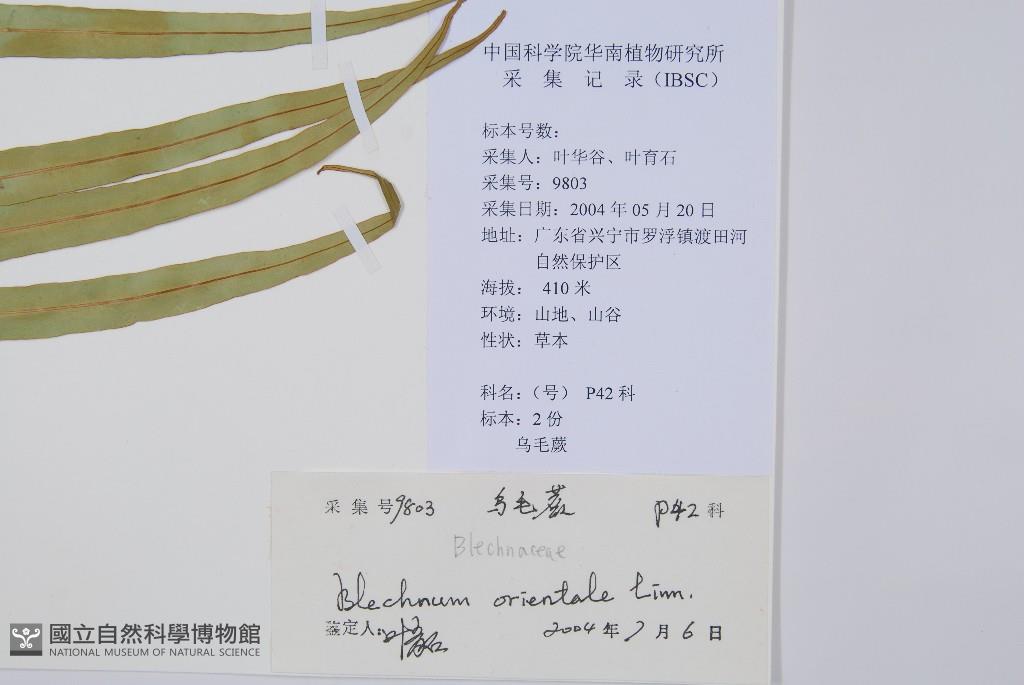 中国科学院华南植物研究所
采 集 记 录（IBSC）
标本号数：
采集人：叶华谷、叶育石
采集号：9803
采集日期：2004 年 05 月 20 日
地址：广东省兴宁市罗浮镇渡田河
自然保护区
海拔： 410 米
环境：山地、山谷
性状：草本
科名：（号） P42 科
标本：2 份
乌毛蕨
采 集 号 9803 乌毛蕨 P42 科
Blechnaceae
Blechnum orientale Linn.
鉴定人：叶育石 2004 年 7 月 6 日
國立自然科學博物館
NATIONAL MUSEUM OF NATURAL SCIENCE